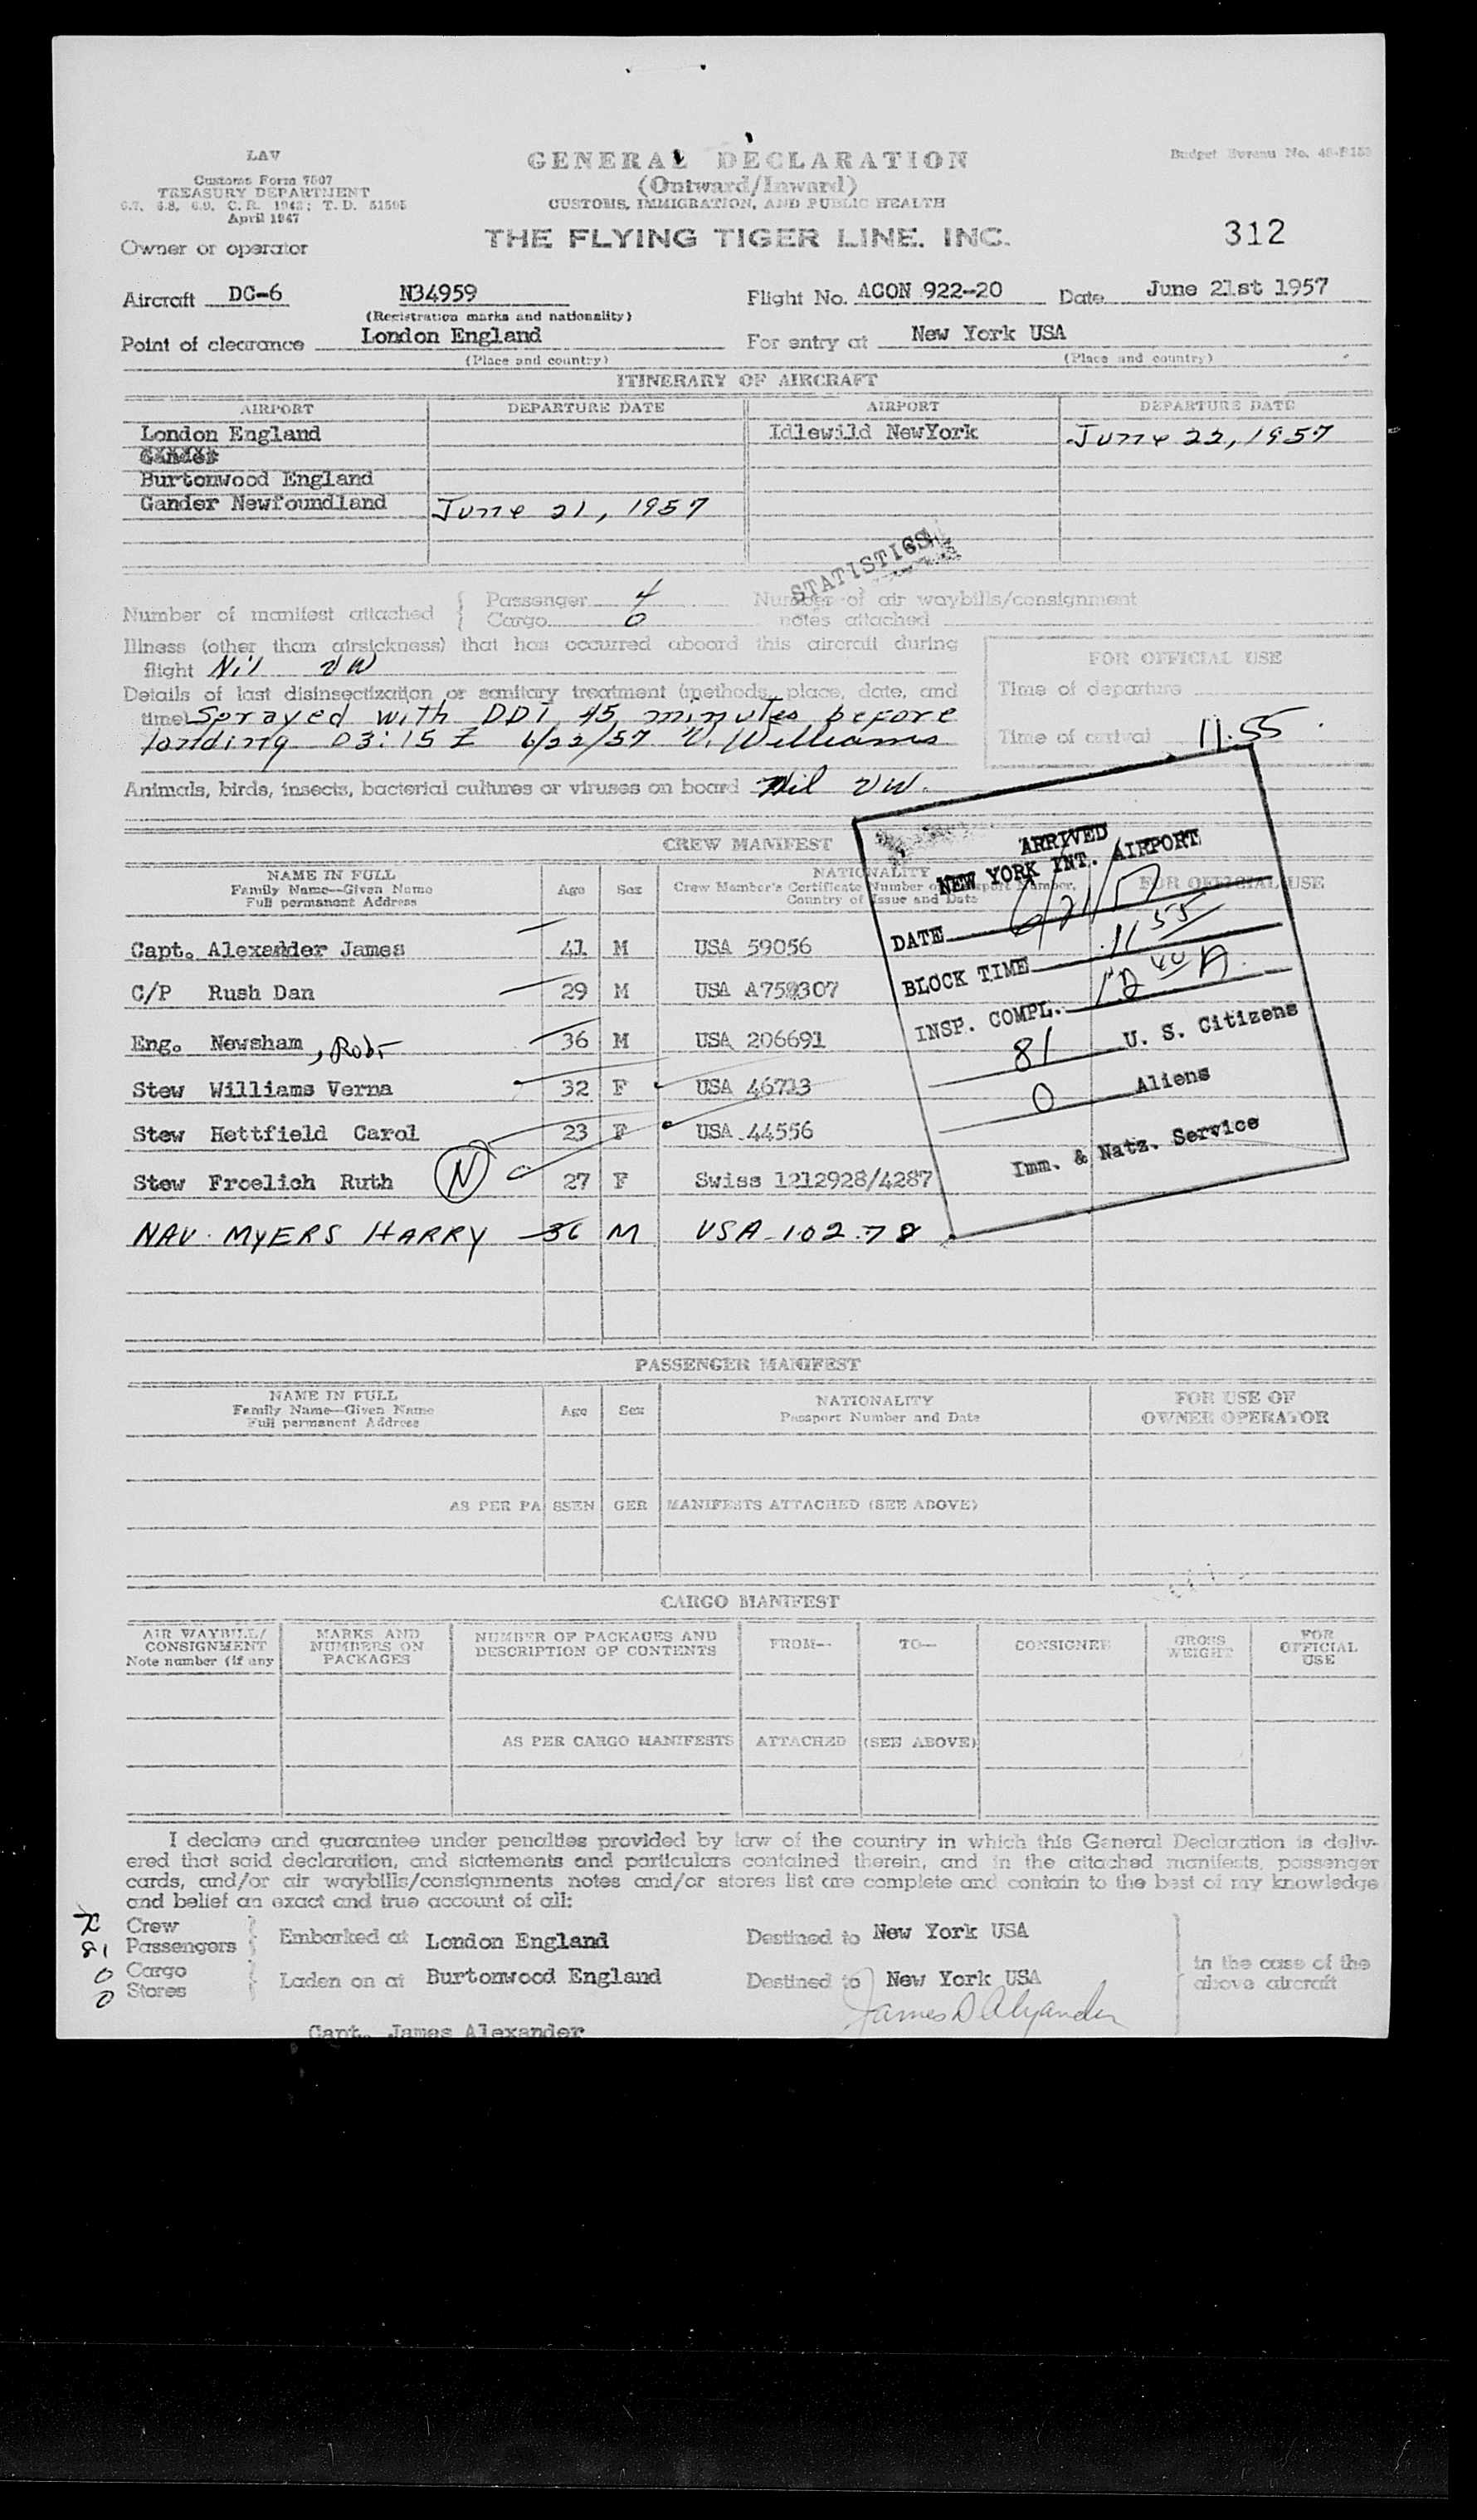 LAV
Customs Form 7507
TREASURY DEPARTMENT
6.7, 6.8, 6.9, C. R. 1943; T. D. 51505
April 1947
GENERAL DECLARATION
(Outward/Inward)
CUSTOMS, IMMIGRATION, AND PUBLIC HEALTH
Budget Bureau No.
Owner or operator THE FLYING TIGER LINE. INC. 312
Aircraft DC-6 N34959 Flight No. ACON 922-20 Date June 21st 1957
(Registration marks and nationality)
Point of clearance London England For entry at New York USA
(Place and country) (Place and country)
ITINERARY OF AIRCRAFT
AIRPORT DEPARTURE DATE AIRPORT DEPARTURE DATE
London England Idlewild NewYork June 22, 1957
Gander
Burtonwood England
Gander Newfoundland June 21, 1957
STATISTICS
Number of manifest attached Passenger 4 Number of air waybills/consignment
Cargo 0 notes attached
Illness (other than airsickness) that has occurred aboard this aircraft during
flight Nil VW
FOR OFFICIAL USE
Details of last disinsectization or sanitary treatment (methods, place, date, and
time) Sprayed with DDT 45 minutes before
landing 03:15 Z 6/22/57 V. Williams
Time of departure
Time of arrival 11.55
Animals, birds, insects, bacterial cultures or viruses on board Nil VW.
CREW MANIFEST
NAME IN FULL
Family Name—Given Name
Full permanent Address
Age Sex
NATIONALITY
Crew Member's Certificate Number or Passport Number,
Country of Issue and Date
FOR OFFICIAL USE
ARRIVED
NEW YORK INT. AIRPORT
DATE 6/21/57
BLOCK TIME 11 55
INSP. COMPL. 12 40 A.
81 U. S. Citizens
0 Aliens
Imm. & Natz. Service
Capt. Alexander James 41 M USA 59056
C/P Rush Dan 29 M USA
Eng. Newsham, Robt 36 M USA 206691
Stew Williams Verna 32 F USA 46713
Stew Hettfield Carol 23 F USA 44556
Stew Froelich Ruth N 27 F Swiss 1212928/4287
NAV. MYERS HARRY 36 M USA 10278
PASSENGER MANIFEST
NAME IN FULL
Family Name—Given Name
Full permanent Address
Age Sex
NATIONALITY
Passport Number and Date
FOR USE OF
OWNER OPERATOR
AS PER PASSENGER MANIFESTS ATTACHED (SEE ABOVE)
CARGO MANIFEST
AIR WAYBILL/
CONSIGNMENT
Note number (if any
MARKS AND
NUMBERS ON
PACKAGES
NUMBER OF PACKAGES AND
DESCRIPTION OF CONTENTS
FROM— TO— CONSIGNEE
GROSS
WEIGHT
FOR
OFFICIAL
USE
AS PER CARGO MANIFESTS ATTACHED (SEE ABOVE)
I declare and guarantee under penalties provided by law of the country in which this General Declaration is deliv-
ered that said declaration, and statements and particulars contained therein, and in the attached manifests, passenger
cards, and/or air waybills/consignments notes and/or stores list are complete and contain to the best of my knowledge
and belief an exact and true account of all:
7 Crew
81 Passengers Embarked at London England Destined to New York USA
0 Cargo
0 Stores Laden on at Burtonwood England Destined to New York USA
in the case of the
above aircraft
James D Alexander
Capt. James Alexander